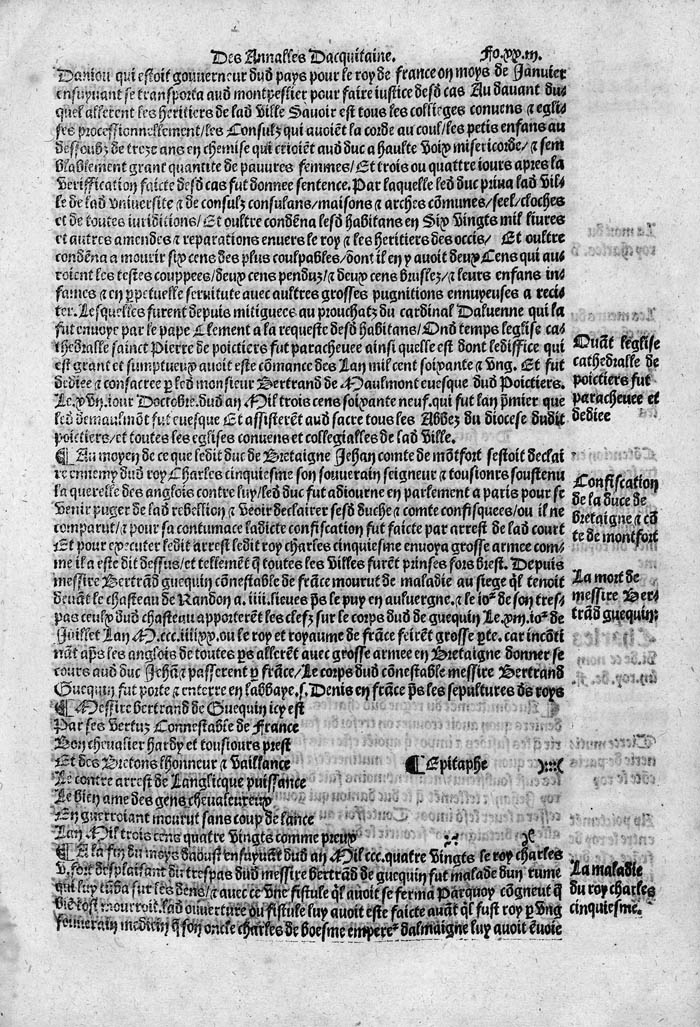 Des Annalles Dacquitaine. Fo.xx.iii.
Daniou qui estoit gouverneur dud pays pour le roy de france on moys de Januier
ensuyuant se transporta aud montpeslier pour faire iustice desd cas Au dauant du⸗
quel allerent les heritiers de lad ville Sauoir est tous les collieges convens ⁊ egli⸗
ses processionnellement/les Consulz qui auoiẽt la corde au coul/les petis enfans au
dessoubz de treze ans en chemise qui crioiẽt aud duc a haulte voix misericorde/⁊ sem
blablement grant quantite de pauures femmes/Et trois ou quattre iours apres la
veriffication faicte desd cas fut donnee sentence. Par laquelle led duc priua lad vil⸗
le de lad vniuersite ⁊ de consulz consulans/maisons ⁊ arches cõmunes/seel/cloches
et de toutes iuridicions/Et oultre condẽna lesd habitans en Six vingts mil liures
et autres amendes ⁊ reparations enuers le roy ⁊ les heritiers des occis/ Et oultre
condẽna a mourir six cens des plus coulpables/dont il en y auoit deux Cens qui au⸗
roient les testes couppees/deux cens penduz/⁊ deux cens bruslez/⁊ leurs enfans in⸗
fames ⁊ en ꝑpetuelle seruitute auec aultres grosses pugnitions ennuyeuses a reci⸗
ter. Lesquelles furent depuis mitiguees au prouchatz du cardinal Daluenne qui la
fut enuoye par le pape Clement a la requeste desd habitans/Ond temps leglise ca⸗
thedralle sainct Pierre de poictiers fut paracheuee ainsi quelle est dont lediffice qui
est grant et sumptueux auoit este cõmance des Lan mil cent soixante ⁊ vng. Et fut
dediee ⁊ consacree ꝑ led monsieur Bertrand de Maulmont euesque dud Poictiers.
Le.xvii.iour Doctobre.dud an Mil trois cens soixante neuf.qui fut lan p̃mier que
led demaulmõt fut euesque Et assisterẽt aud sacre tous les Abbez du diocese dudit
poictiers/et toutes ses eglises convens et collegialles de lad ville.
¶ Au moyen de ce que ledit duc de Bretaigne Jehan comte de mõtfort sestoit declai
re ennemy dud roy Charles cinquiesme son souuerain seigneur ⁊ tousiours soustenu
la querelle des anglois contre luy/led duc fut adiourne en parlement a paris pour se
venir purger de lad rebellion ⁊ veoir declairer sesd duche ⁊ comte confisquees/ou il ne
comparut/⁊ pour sa contumace ladicte confiscation fut faicte par arrest de lad court
Et pour executer ledit arrest ledit roy charles cinquiesme enuoya grosse armee com⸗
me il a este dit dessus/et tellemẽt q̃ toutes les villes furẽt prinses fors brest. Depuis
messire Bertrãd guequin cõnestable de frãce mourut de maladie au siege q̃l tenoit
deuãt le chasteau de Randon a.iiii.lieues p̃s le puy en auluergne.⁊ le ioʳ de son tres⸗
pas ceulx dud chasteau apporterẽt les clefz sur le corps dud de guequin Le.xiii.ioʳ.de
Juillet Lan M.ccc.iiii.xx.ou le roy et royaume de frãce feirẽt grosse ꝑte.car incõti
nãt ap̃s les anglois de toutes ꝑs allerẽt auec grosse armee en Bretaigne donner se
cours aud duc Jehã⁊ passerent ꝑ frãce/Le corps dud cõnestable messire Bertrand
Guequin fut porte ⁊ enterre en labbaye.s.Denis en frãce p̃s les sepultures ds roys
¶ Messire bertrand de Guequin icy est
Par ses vertuz Connestable de France
Bon cheualier hardy et tousiours prest
Et des Bretons lhonneur ⁊ vaillance ¶ Epitaphe
Le contre arrest de Langlicque puissance
Le bien ame des gens cheualeureux
En guerroiant mourut sans coup de lance
Lan Mil trois cens quatre vingts comme preux
¶ A la fin du moys daoust ensuyuãt dud an Mil ccc.quatre vingts le roy charles
v.fort desplaisant du trespas dud messire bertrãd de guequin fut malade dun rume
qui luy tũba sur les dens/⁊ auec ce vne fistule q̃l auoit se ferma Parquoy cõgneut q̃
biẽ tost mourroit.lad ouuerture ou fistule luy auoit este faicte auãt q̃l fust roy ꝑ vng
souuerain medicin q̃ son oncle charles de boesme empereʳ dalmaigne luy auoit ẽuoie
Quãt leglise
cathedralle de
poictiers fut
paracheuee et
dediee
Confiscation
de la duce de
bretaigne ⁊ cõ
te de montfort
La mort de
messire Ber⸗
trãd guequin:
La maladie
du roy charles
cinquiesme.